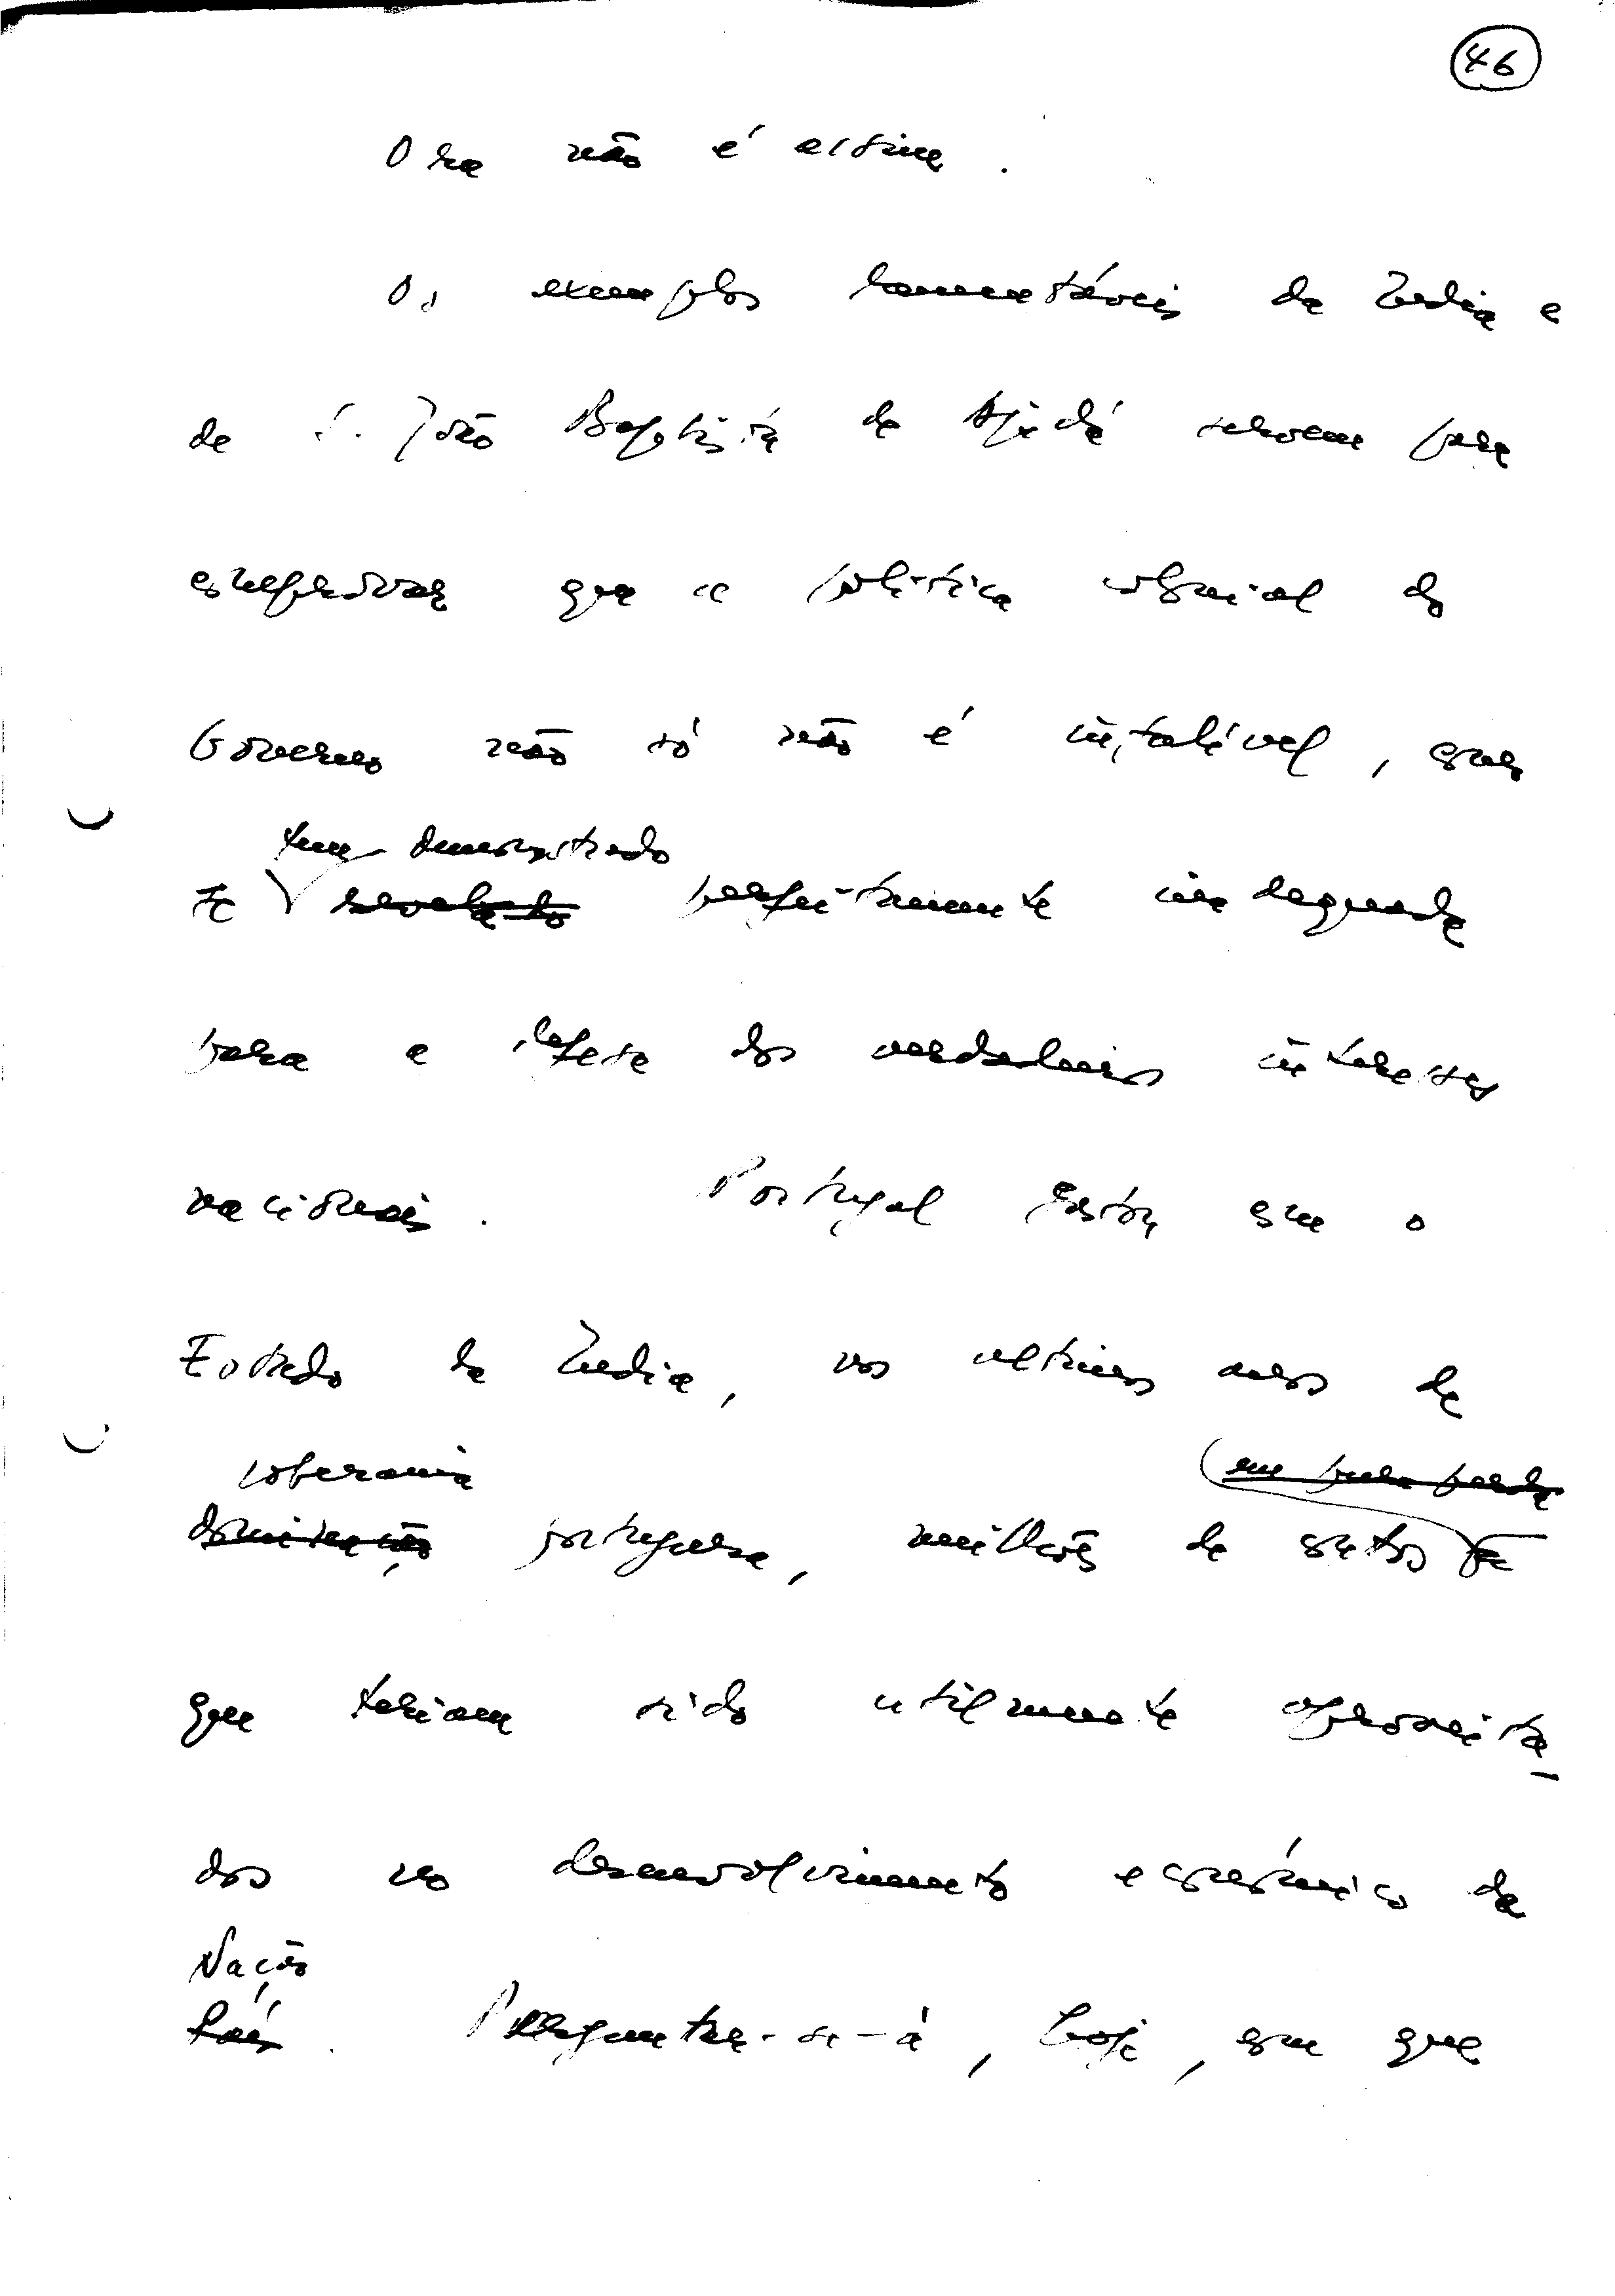 46
Ora não é assim.
Os exemplos lamentáveis da India e
de S. João Baptista de Ajudá servem para
comprovar que a política colonial do
Governo não só não é infalível, como
tem demonstrado
se revelado perfeitamente inadequada
para a defesa dos verdadeiros interesses
nacionais. Portugal gastou com o
Estado da India, nos ultimos anos de
soberania (em pura perda
dominação portuguesa, milhões de contos
que teriam sido utilmente aproveita-
dos no desenvolvimento económico da
Nação
País. Perguntar-se-á, hoje, em que